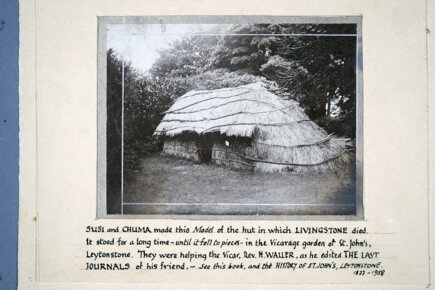 SUSI and CHUMA made this Model of the hut in which LIVINGSTONE died.
It stood for a long time - until it fell to pieces - in the Vicarage garden of St. John's,
Leytonstone. They were helping the Vicar, Rev. H. WALLER, as he edited THE LAST
JOURNALS of his friend. - See this book, and the HISTORY OF ST. JOHN'S, LEYTONSTONE.
1833 - 1958